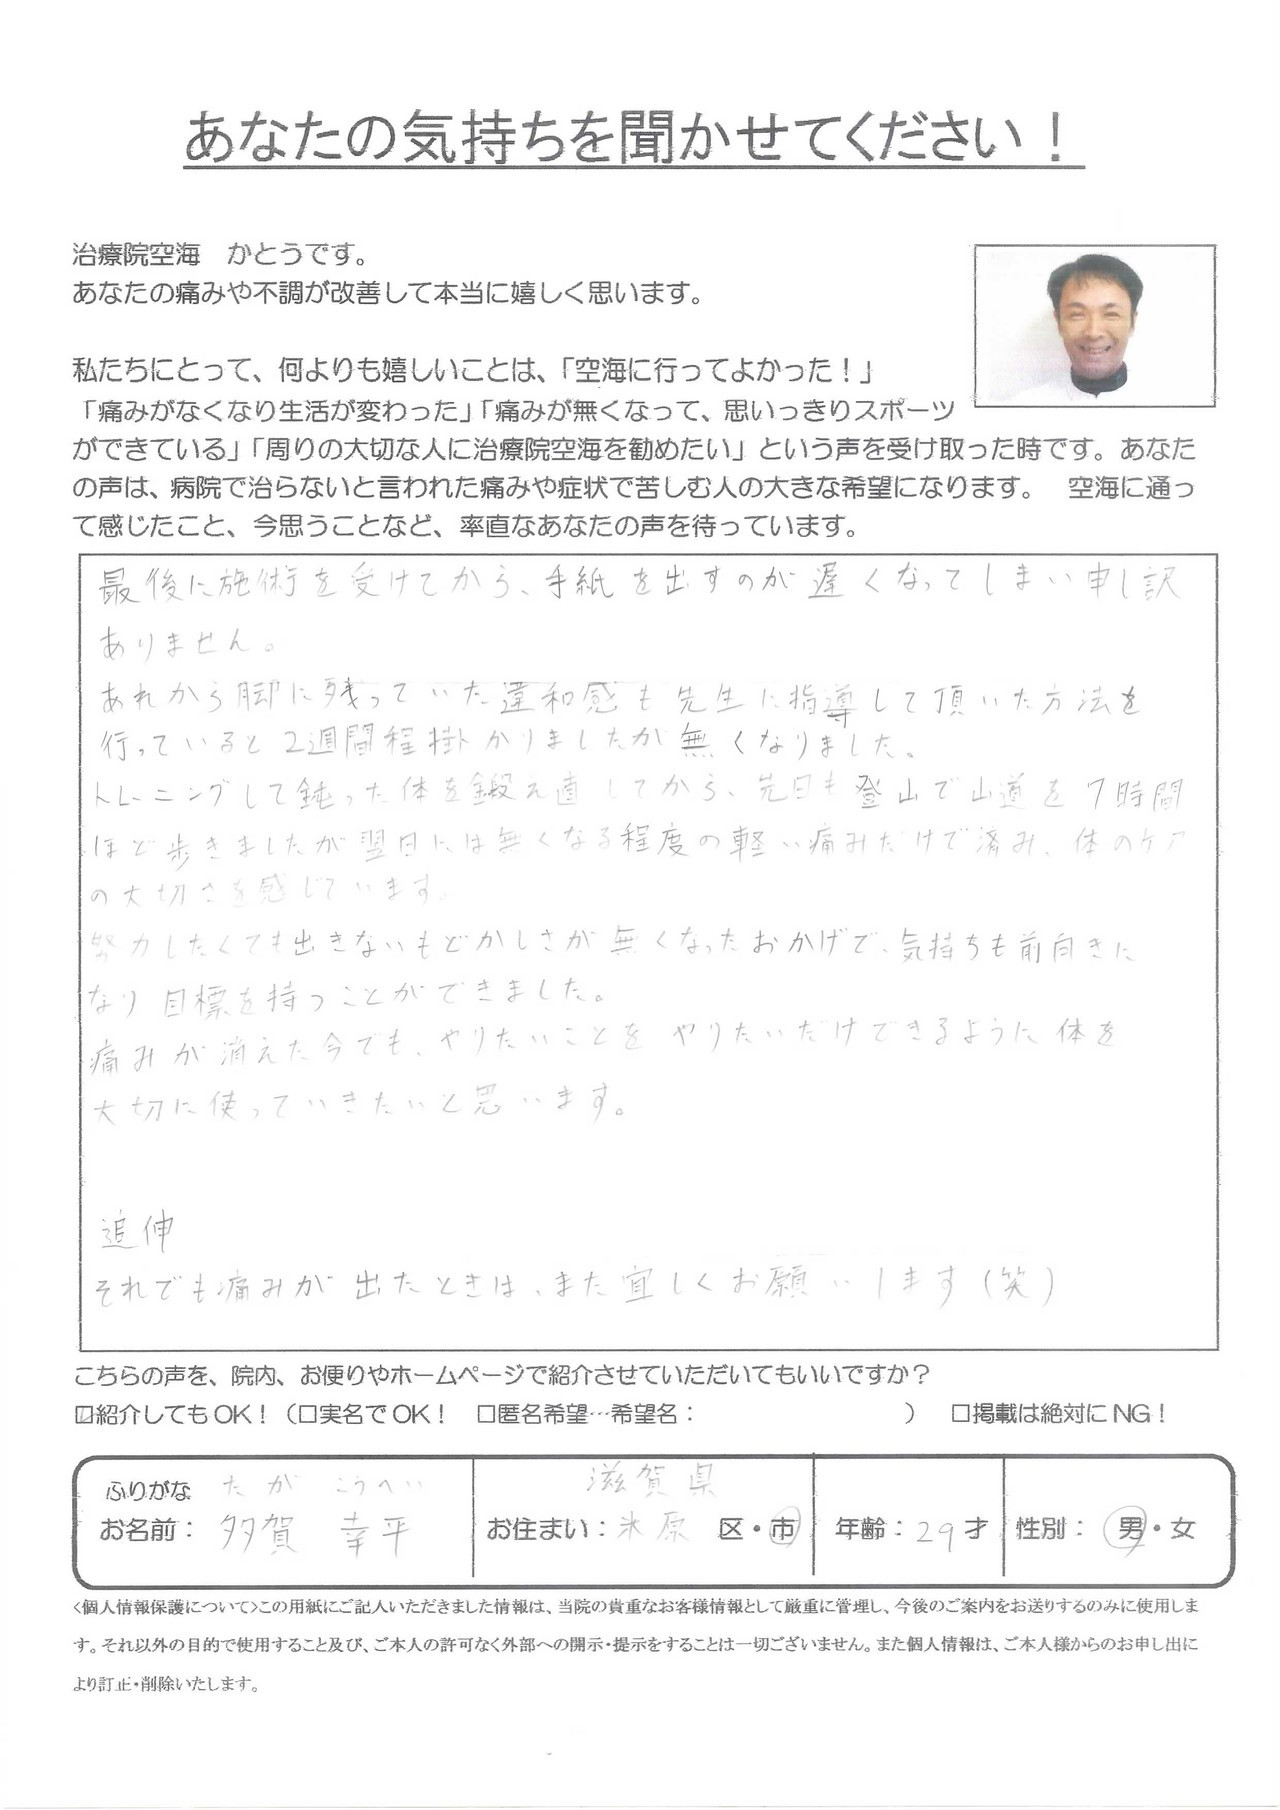 あなたの気持ちを聞かせてください！
治療院空海　かとうです。
あなたの痛みや不調が改善して本当に嬉しく思います。
私たちにとって、何よりも嬉しいことは、「空海に行ってよかった！」
「痛みがなくなり生活が変わった」「痛みが無くなって、思いっきりスポーツ
ができている」「周りの大切な人に治療院空海を勧めたい」という声を受け取った時です。あなた
の声は、病院で治らないと言われた痛みや症状で苦しむ人の大きな希望になります。　空海に通っ
て感じたこと、今思うことなど、率直なあなたの声を待っています。
最後に施術を受けてから、手紙を出すのが遅くなってしまい申し訳
ありません。
あれから脚に残っていた違和感も先生に指導して頂いた方法を
行っていると2週間程掛かりましたが無くなりました。
トレーニングして鈍った体を鍛え直してから、先日も登山で山道を7時間
ほど歩きましたが翌日には無くなる程度の軽い痛みだけで済み、体のケア
の大切さを感じています。
努力したくても出きないもどかしさが無くなったおかげで、気持ちも前向きに
なり目標を持つことができました。
痛みが消えた今でも、やりたいことをやりたいだけできるように体を
大切に使っていきたいと思います。
追伸
それでも痛みが出たときは、また宜しくお願いします(笑)
こちらの声を、院内、お便りやホームページで紹介させていただいてもいいですか？
☑紹介してもOK！（□実名でOK！　□匿名希望…希望名：　　　　　　　　　）　□掲載は絶対にNG！
ふりがな　たが　こうへい
お名前：多賀　幸平
滋賀県
お住まい：米原　区・市
年齢：29才
性別：男・女
<個人情報保護について>この用紙にご記入いただきました情報は、当院の貴重なお客様情報として厳重に管理し、今後のご案内をお送りするのみに使用しま
す。それ以外の目的で使用すること及び、ご本人の許可なく外部への開示・提示をすることは一切ございません。また個人情報は、ご本人様からのお申し出に
より訂正・削除いたします。